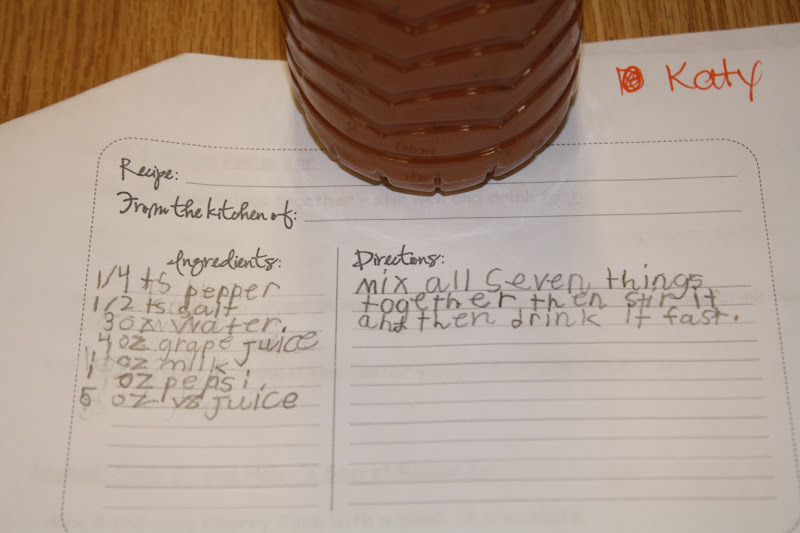 Katy
Recipe:
From the kitchen of:
Ingredients:
1/4 ts pepper
1/2 ts salt
3 oz water.
4 oz grape juice
1 oz milk
oz pepsi.
5 oz v8 juice
Directions:
mix all seven things
together then stir it
and then drink it fast.